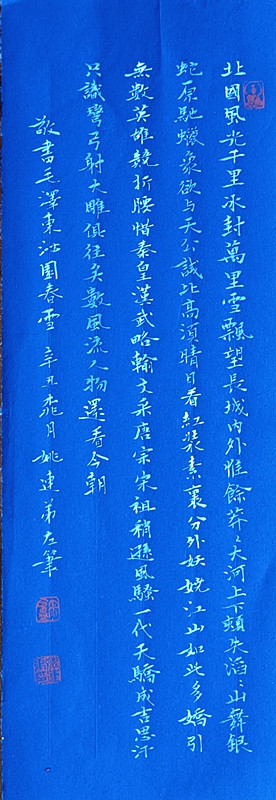 北國風光千里冰封萬里雪飄望長城內外惟餘莽々大河上下頓失滔々山舞銀
蛇原馳蠟象欲与天公試比高須晴日看紅裝素裹分外妖嬈江山如此多嬌引
無數英雄競折腰惜秦皇漢武略輸文采唐宗宋祖稍遜風騷一代天驕成吉思汗
只識彎弓射大雕俱往矣數風流人物還看今朝
敬書毛澤東沁園春雪辛丑桃月姚連弟左筆